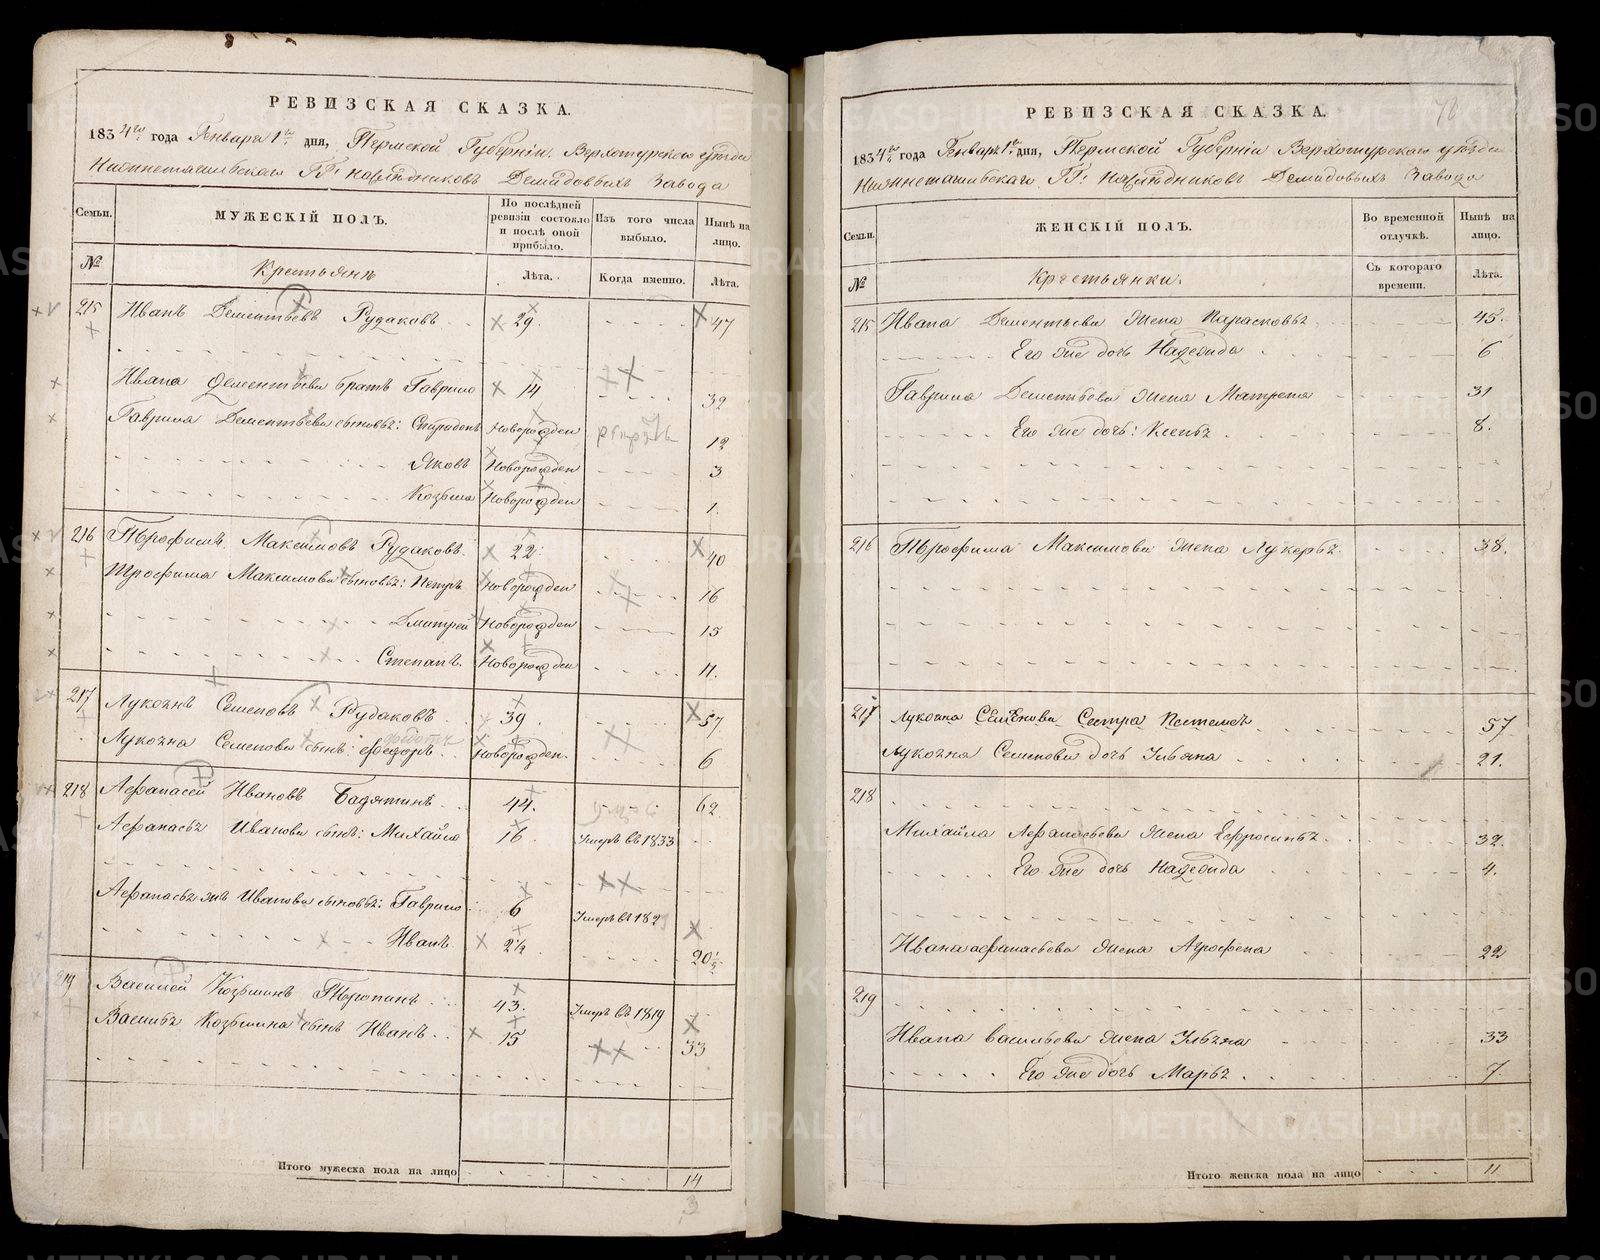 РЕВИЗСКАЯ СКАЗКА.
1834го года Генваря 1го дня, Пермской Губернiи Верхотурскаго уѣзда
Нижнетагильскаго ГГ: наслѣдниковъ Демидовыхъ Завода
Семьи.
МУЖЕСКIЙ ПОЛЪ.
По послѣдней ревизiи состояло и послѣ оной прибыло.
Изъ того числа выбыло.
Нынѣ на лицо.
№
Крестьянъ
Лѣта.
Когда именно.
Лѣта.
215 Иванъ Дементьевъ Рудаковъ 29. 47
Ивана Дементьева братъ Гаврило 14 32
Гаврила Дементьева сыновья: Спиридонъ Новорожден 12
Яковъ Новорожден 3
Козьма Новорожден 1.
216 Трофимъ Максимовъ Рудаковъ. 22. 40
Трофима Максимова сыновья: Петръ Новорожден 16
Дмитрей Новорожден 15
Степанъ. Новорожден 11.
217 Лукоянъ Семеновъ Рудаковъ 39. 57
Лукояна Семенова сынъ: Федоръ. Новорожден. 6
218 Афанасей Ивановъ Бадятинъ 44. 62
Афанасья Иванова сынъ: Михайло 16 Умеръ въ 1833
Афанасья же Иванова сыновья: Гаврило 6 Умеръ въ 182
Иванъ 2½ 20½
219 Василей Козьминъ Тюринъ. 43. Умеръ въ 1819
Василья Козьмина сынъ Иванъ. 15 33
Итого мужеска пола на лицо 14
3
70
РЕВИЗСКАЯ СКАЗКА.
1834го года Генваря 1го дня, Пермской Губернiи Верхотурскаго уѣзда
Нижнетагильскаго ГГ: наслѣдниковъ Демидовыхъ Завода
Семьи.
ЖЕНСКIЙ ПОЛЪ.
Во временной отлучкѣ.
Нынѣ на лицо.
№
Крестьянки.
Съ котораго времени.
Лѣта.
215 Ивана Дементьева жена Парасковья 45.
Его же дочь Надежда 6
Гаврила Дементьева жена Матрена 31
Его же дочь: Ксенья 8.
216 Трофима Максимова жена Лукерья. 38.
217 Лукояна Семенова Сестра 57
Лукояна Семенова дочь Ульяна 21.
218
Михайла Афанасьева жена Ефросинья 32.
Его же дочь Надежда 4.
Ивана афанасьева жена Агрофена 22
219
Ивана васильева жена Ульяна 33
Его же дочь Марья 7
Итого женска пола на лицо 11
METRIKI.GASO-URAL.RU